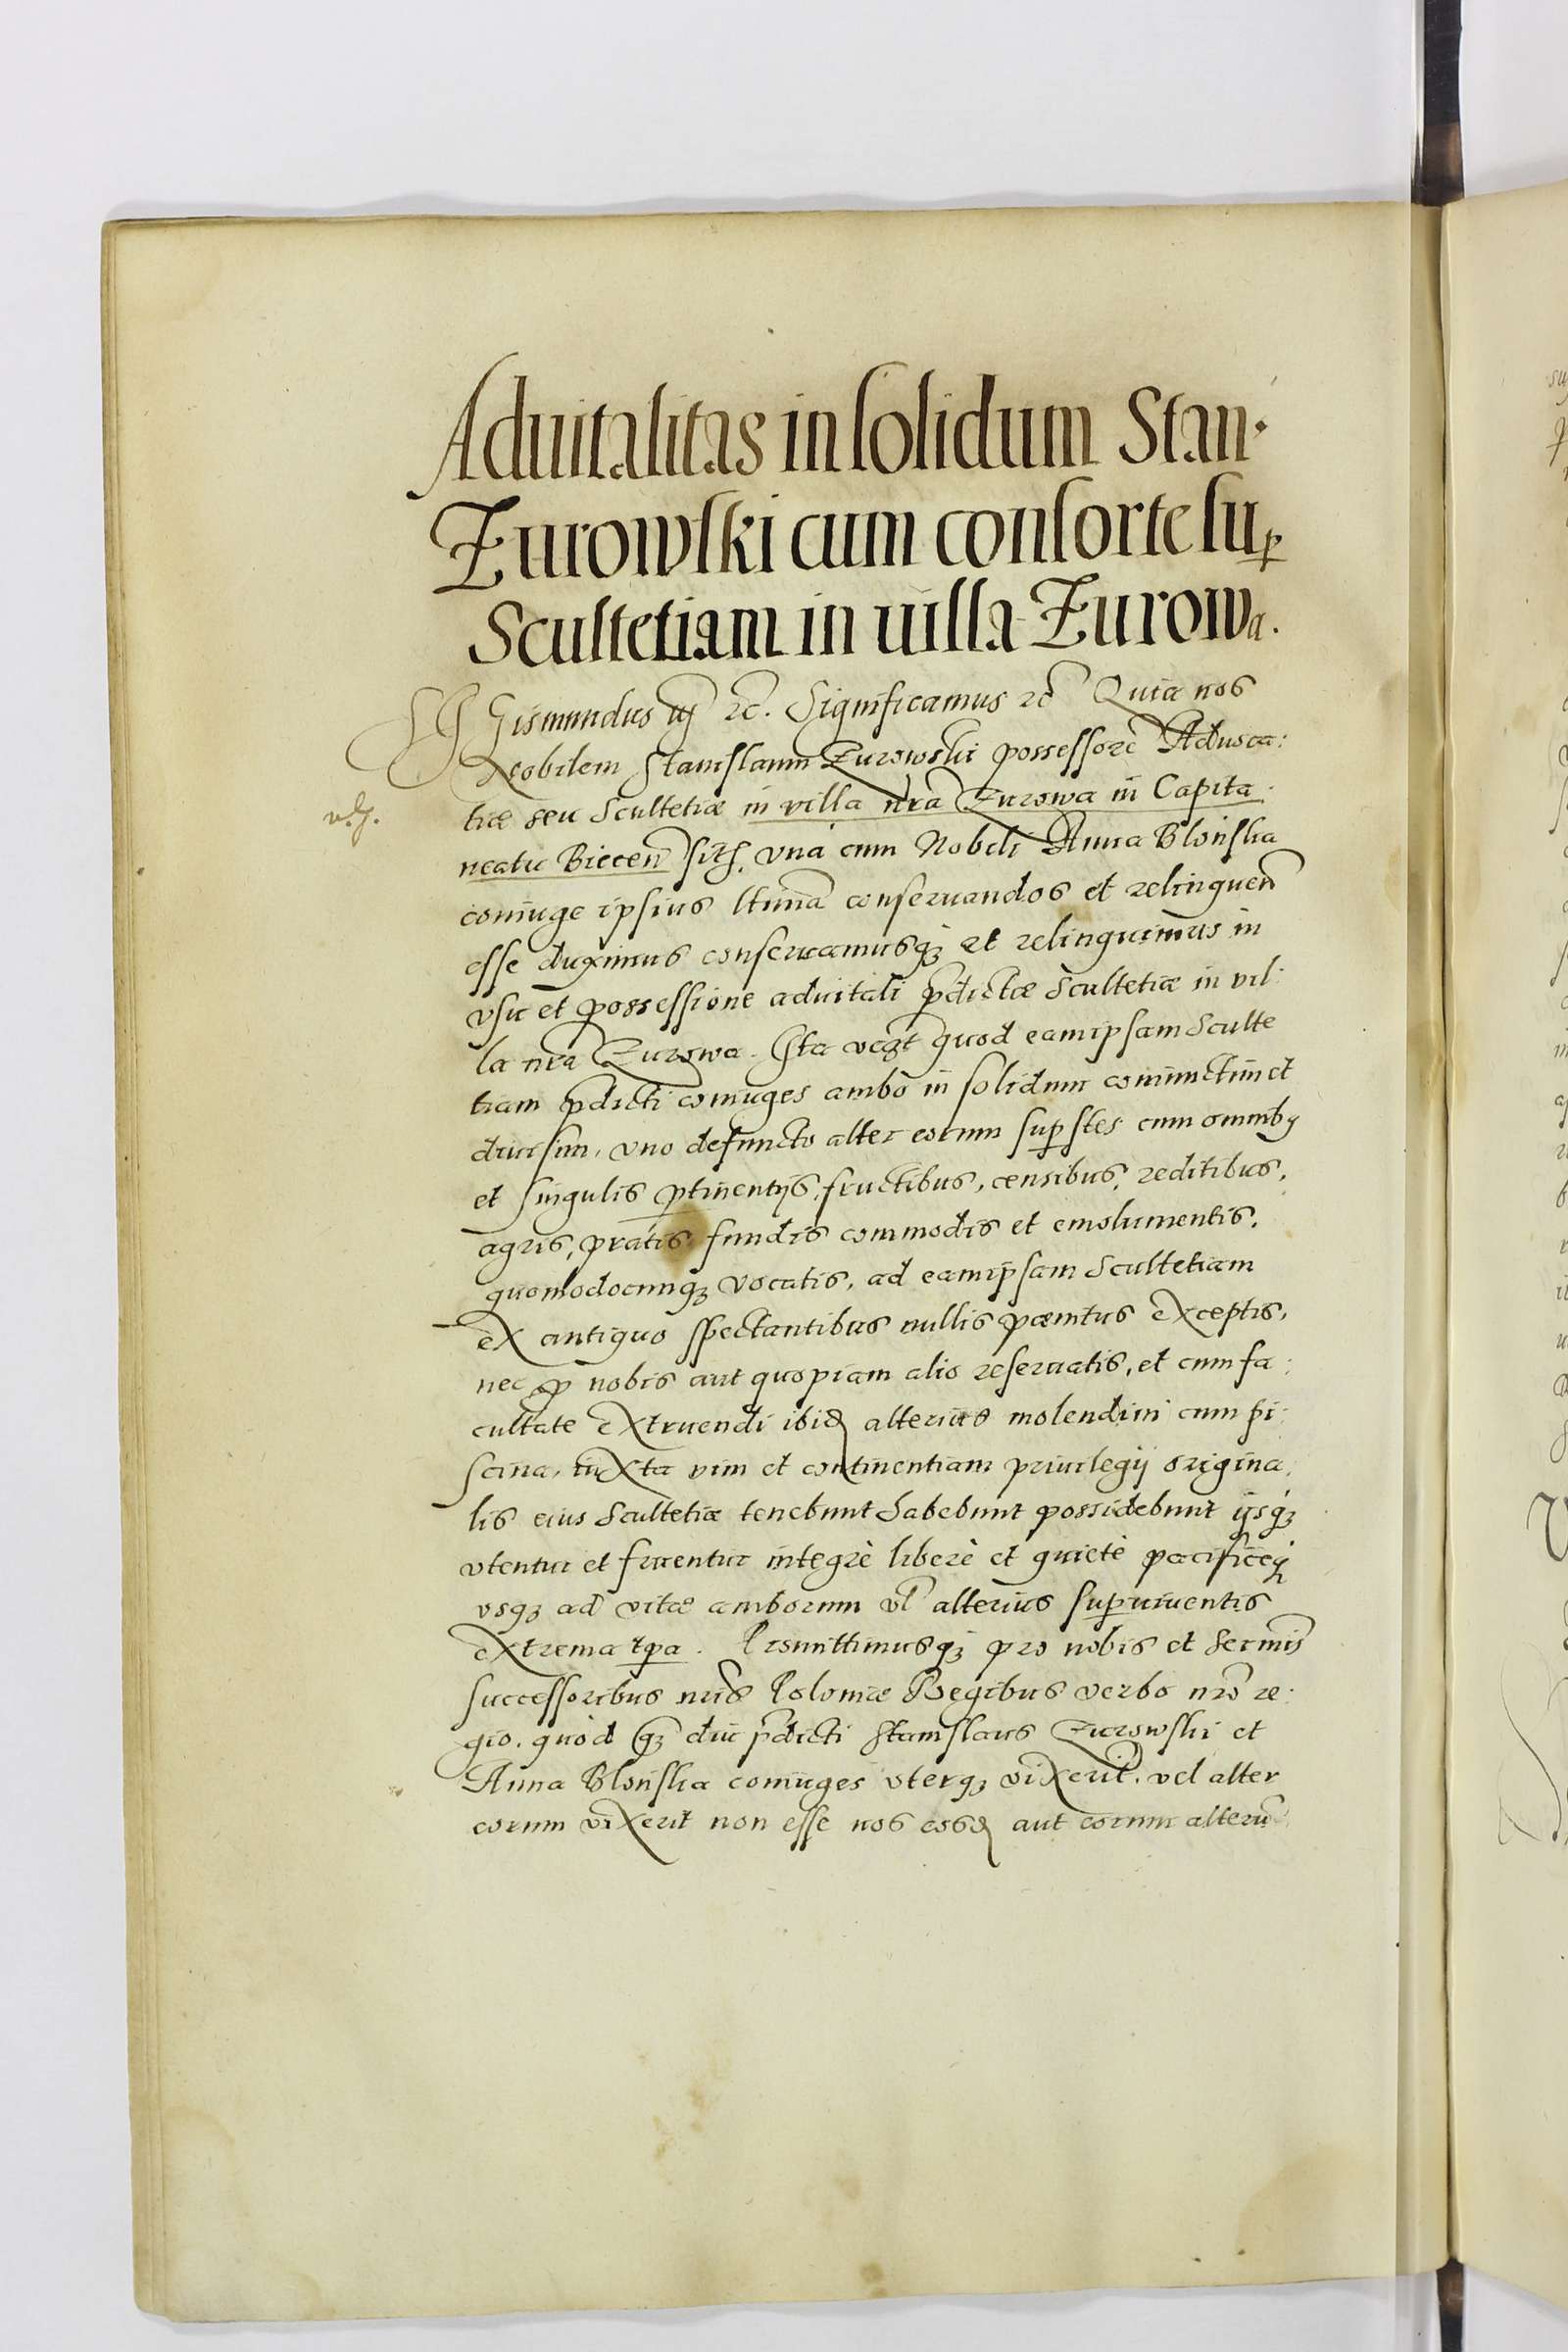 Aduitalitas in solidum Stan·
Zurowski cum consorte sup
Scultetiam in uilla Zurowa.
Sigismundus iij zc. Significamus zc̃ Quia nos
Nobilem Stanislaum Zurowski possessorẽ Aduoca:
tiæ seu Scultetiæ in villa nrã Zurowa in Capita
neatu Biecen̄ sitͣ, vnà cum Nobili Anna Blońska
coniuge ipsius ltimã conseruandos et relinquen̄
esse duximus conseruamusq; et relinquimus in
vsu et possessione aduitali p̄dictæ Scultetiæ in vil:
la nrã Zurowa. Ita vz̃t quod eamipsam Sculte
tiam p̄dicti coniuges ambo in solidum coniunctim et
diuisim, vno defuncto alter eorum sup̱stes cum omnibꝫ
et singulis p̱tinentijs, fructibus, censibus, reditibus,
agris, pratis fundis commodis et emolumentis,
quomodocunq; vocatis, ad eamipsam Scultetiam
ex antiquo spectantibus nullis pænitus exceptis,
nec p̱ nobis aut quopiam alio reseruatis, et cum fa:
cultate extruendi ibiđ alterius molendini cum pi:
scina, iuxta vim et continentiam priuilegij origina:
lis eius Scultetiæ tenebunt habebunt possidebunt ijsq́;
vtentur et fruentur integrè liberè et quietè pacificeq́;
vsq; ad vitæ amborum vl̃ alterius sup̱uiuentis
extrema tp̱a. Promittimusq́; pro nobis et Serm̃is
successoribus nr̃is Poloniæ Regibus verbo nr̃o re:
gio. quòd q̃; diu p̄dicti Stanislaus Zurowski et
Anna Blońska coniuges vterq; vixerit. vel alter
eorum vixerit non esse nos eosđ aut eorum alterũ